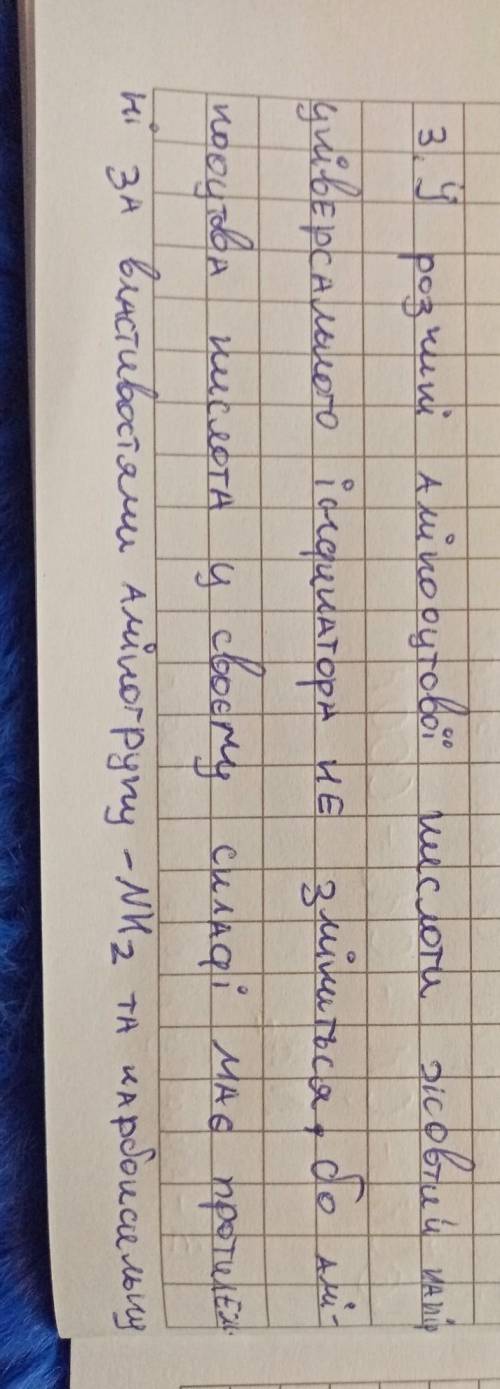 3. У розчині амінооцтової кислоти жовтий папір
універсального індикатора не зміниться, бо амі-
нооцтова кислота у своєму складі має протилеж-
ні за властивостями аміногрупу -NH2 та карбоксильну